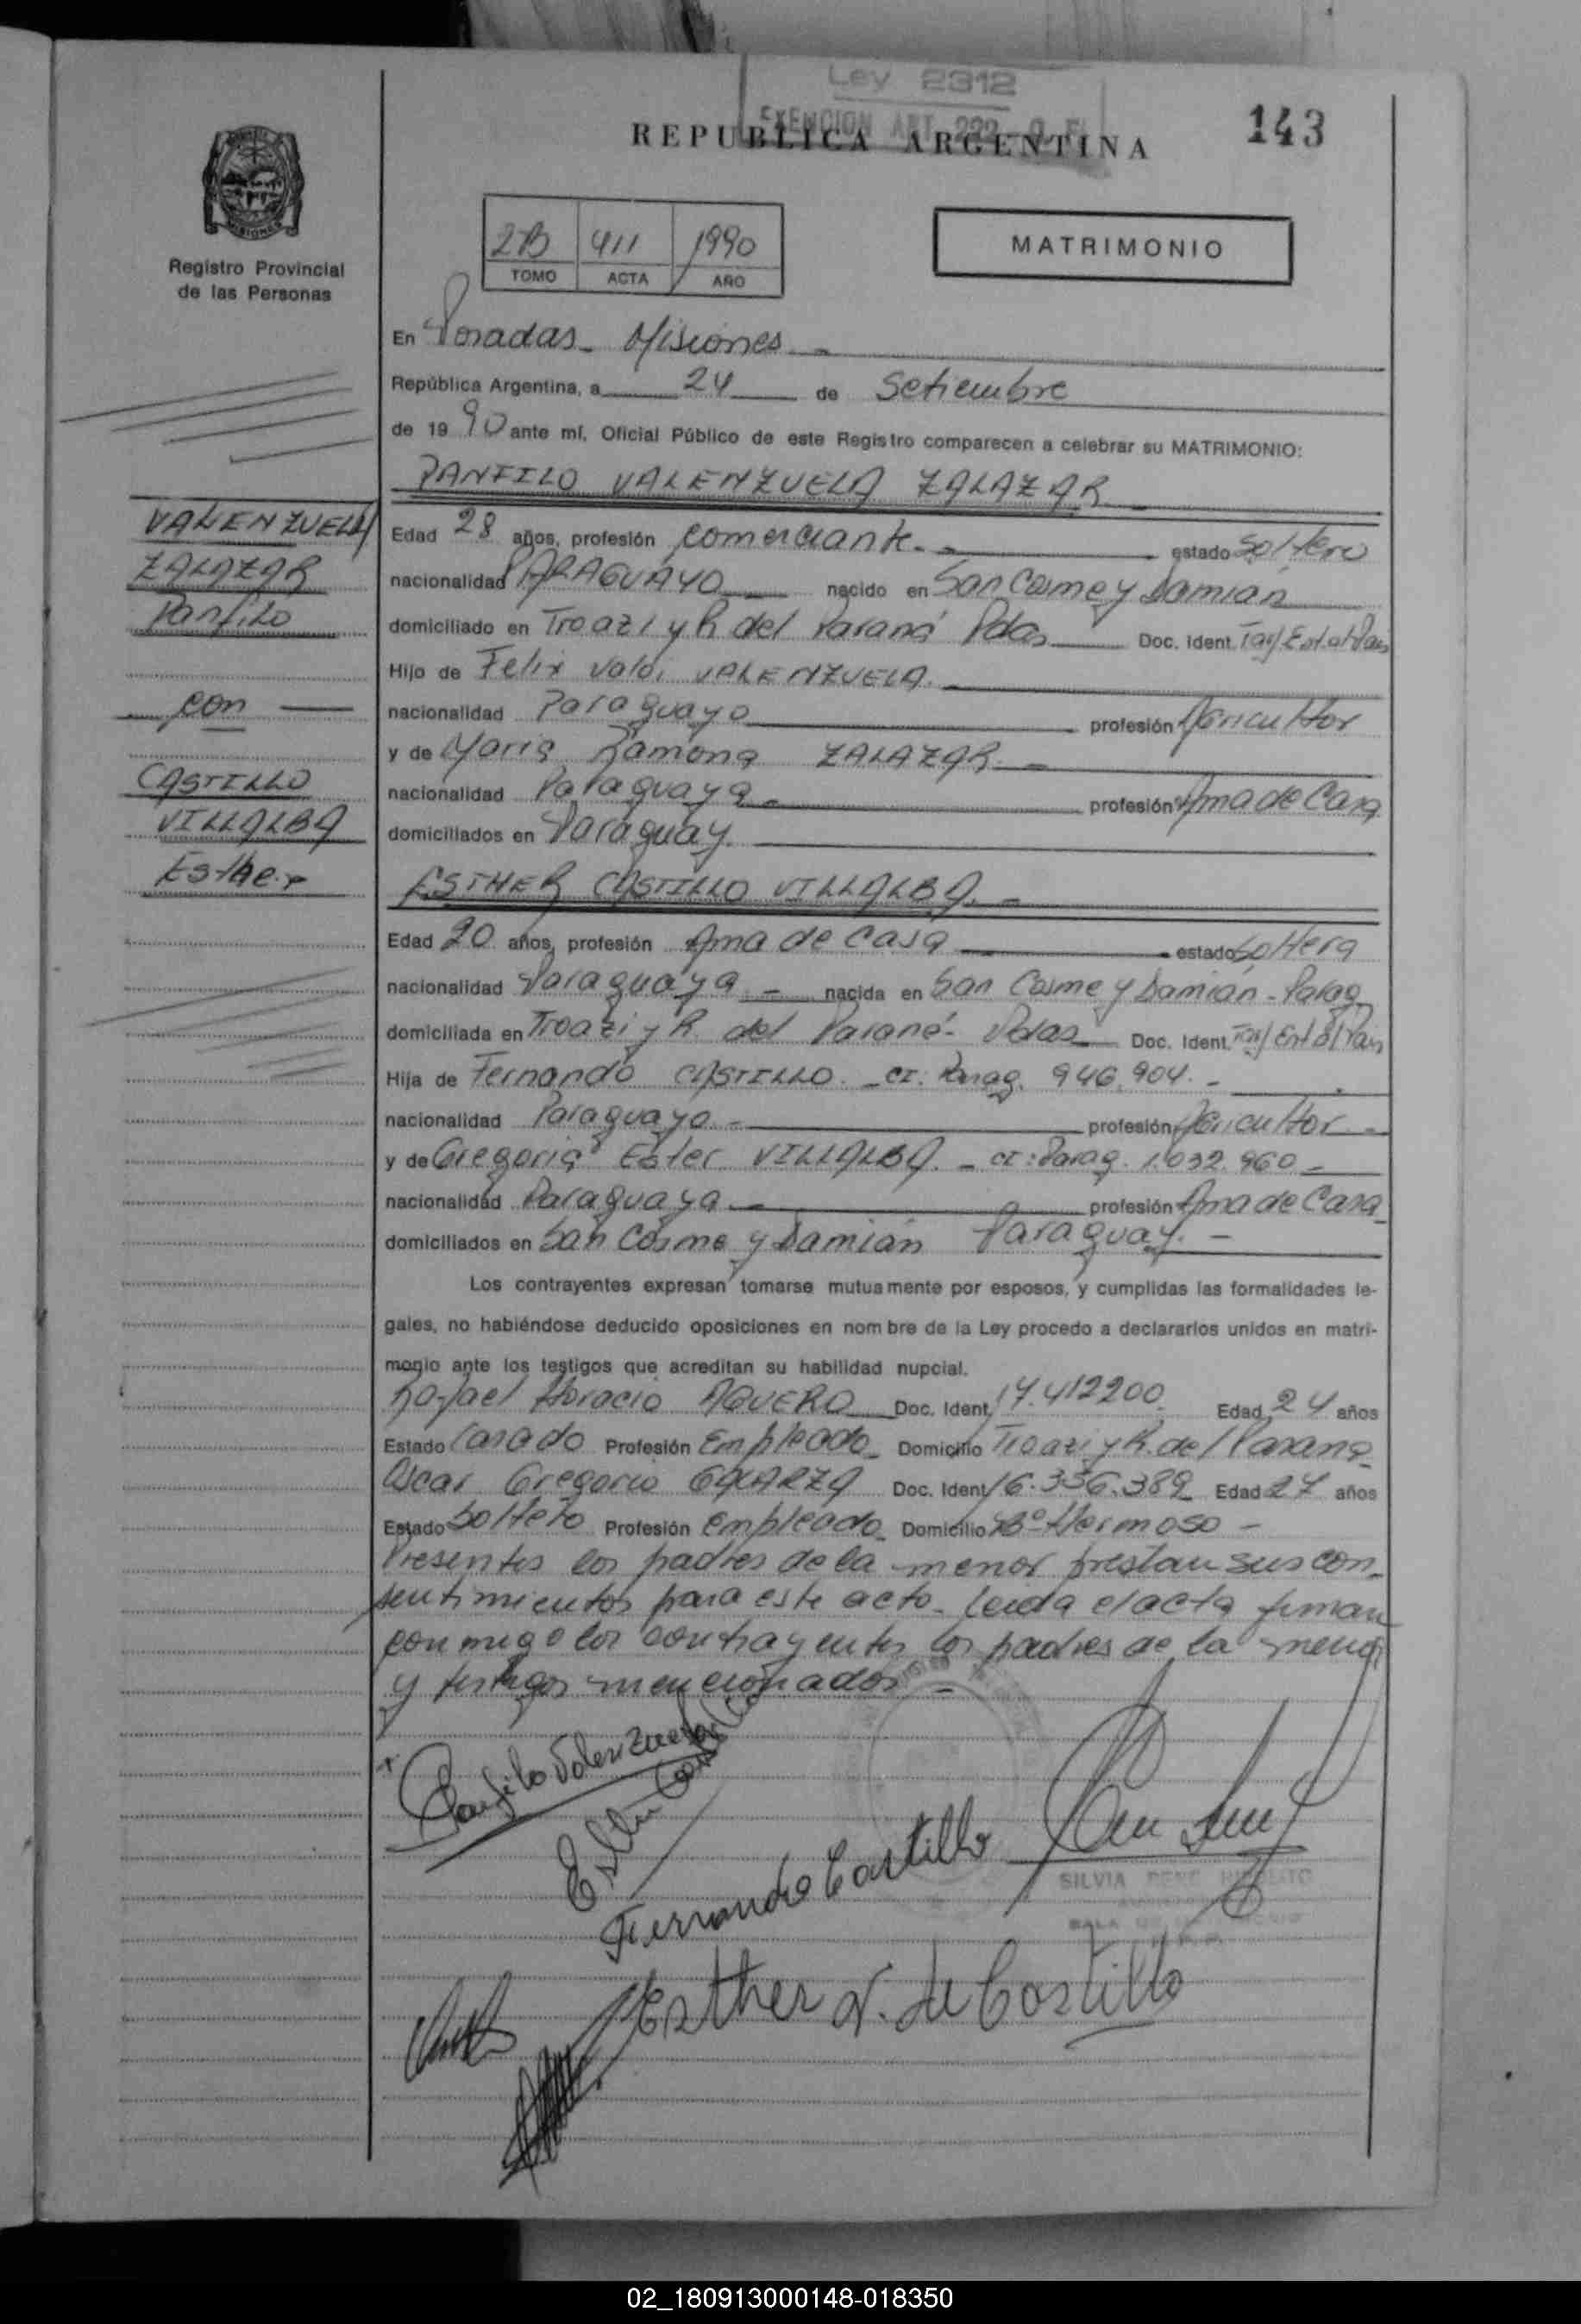 Ley 2312
EXENCION ART. 222
REPUBLICA ARGENTINA
143
MISIONES
Registro Provincial
de las Personas
2B 411 1990
TOMO ACTA AÑO
MATRIMONIO
En Posadas - Misiones -
República Argentina, a 24 de Setiembre
de 1990 ante mí, Oficial Público de este Registro comparecen a celebrar su MATRIMONIO:
PANFILO VALENZUELA ZALAZAR -
VALENZUELA
ZALAZAR
Panfilo
con
CASTILLO
VILLALBA
Esther
Edad 28 años, profesión comerciante. - estado Soltero
nacionalidad PARAGUAYO nacido en San Cosme y Damián
domiciliado en Troazi y R del Paraná Pdas Doc. Ident. Tarj Ent. al Pais
Hijo de Felix Valoi VALENZUELA. -
nacionalidad Paraguayo profesión Agricultor
y de Maria Ramona ZALAZAR. -
nacionalidad Paraguaya - profesión Ama de Casa
domiciliados en Paraguay.
ESTHER CASTILLO VILLALBA. -
Edad 20 años, profesión Ama de Casa estado Soltera
nacionalidad Paraguaya - nacida en San Cosme y Damián - Parag.
domiciliada en Troazi y R. del Paraná - Pdas Doc. Ident. Tarj Ent al Pais
Hija de Fernando CASTILLO - CI: Parag. 946.904. -
nacionalidad Paraguayo - profesión Agricultor -
y de Gregoria Ester VILLALBA. - CI: Parag. 1.032.960 -
nacionalidad Paraguaya - profesión Ama de Casa
domiciliados en San Cosme y Damián Paraguay. -
Los contrayentes expresan tomarse mutuamente por esposos, y cumplidas las formalidades le-
gales, no habiéndose deducido oposiciones en nombre de la Ley procedo a declararlos unidos en matri-
monio ante los testigos que acreditan su habilidad nupcial.
Rafael Horacio AGUERO Doc. Ident. 17.412200 Edad 24 años
Estado Casado Profesión Empleado - Domicilio Troazi y R. del Parana
Oscar Gregorio GALARZA Doc. Ident. 16.356.389 Edad 27 años
Estado Soltero Profesión Empleado - Domicilio Bº Hermoso -
Presentes los padres de la menor prestan sus con-
sentimientos para este acto - Leida el acta firman
conmigo los contrayentes los padres de la menor
y testigos mencionados -
Panfilo Valenzuela
Esther Castillo
Fernando Castillo
SILVIA
Esther V. de Castillo
02_180913000148-018350